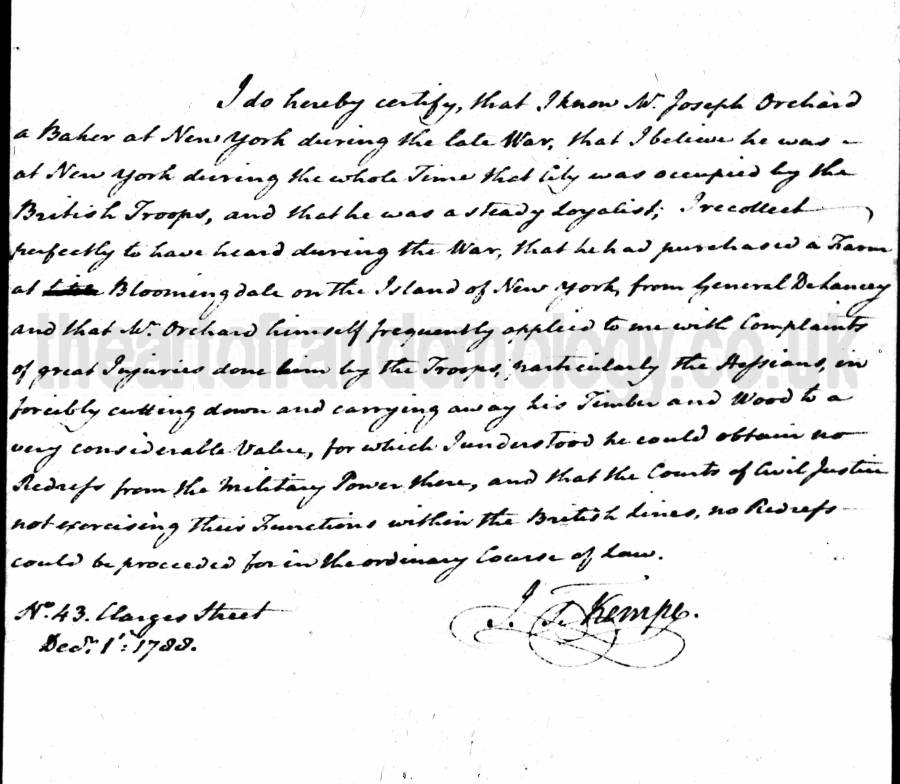 I do hereby certify, that I know Mr. Joseph Orchard
a Baker at New York during the late War, that I believe he was –
at New York during the whole Time that City was occupied by the
British Troops, and that he was a steady Loyalist; I recollect
perfectly to have heard during the War, that he had purchased a Farm
at Bloomingdale on the Island of New York, from General DeLancey
and that Mr. Orchard himself frequently applied to me with Complaints
of great Injuries done him by the Troops, particularly the Hessians, in
forcibly cutting down and carrying away his Timber and Wood to a
very considerable Value, for which I understood he could obtain no
Redress from the Military Power there, and that the Courts of Civil Justice
not exercising their Functions within the British Lines, no Redress –
could be proceeded for in the ordinary Course of Law.
No. 43. Clarges Street
Decr. 1st: 1788.
J. T. Kempe.
theartofrandomology.co.uk